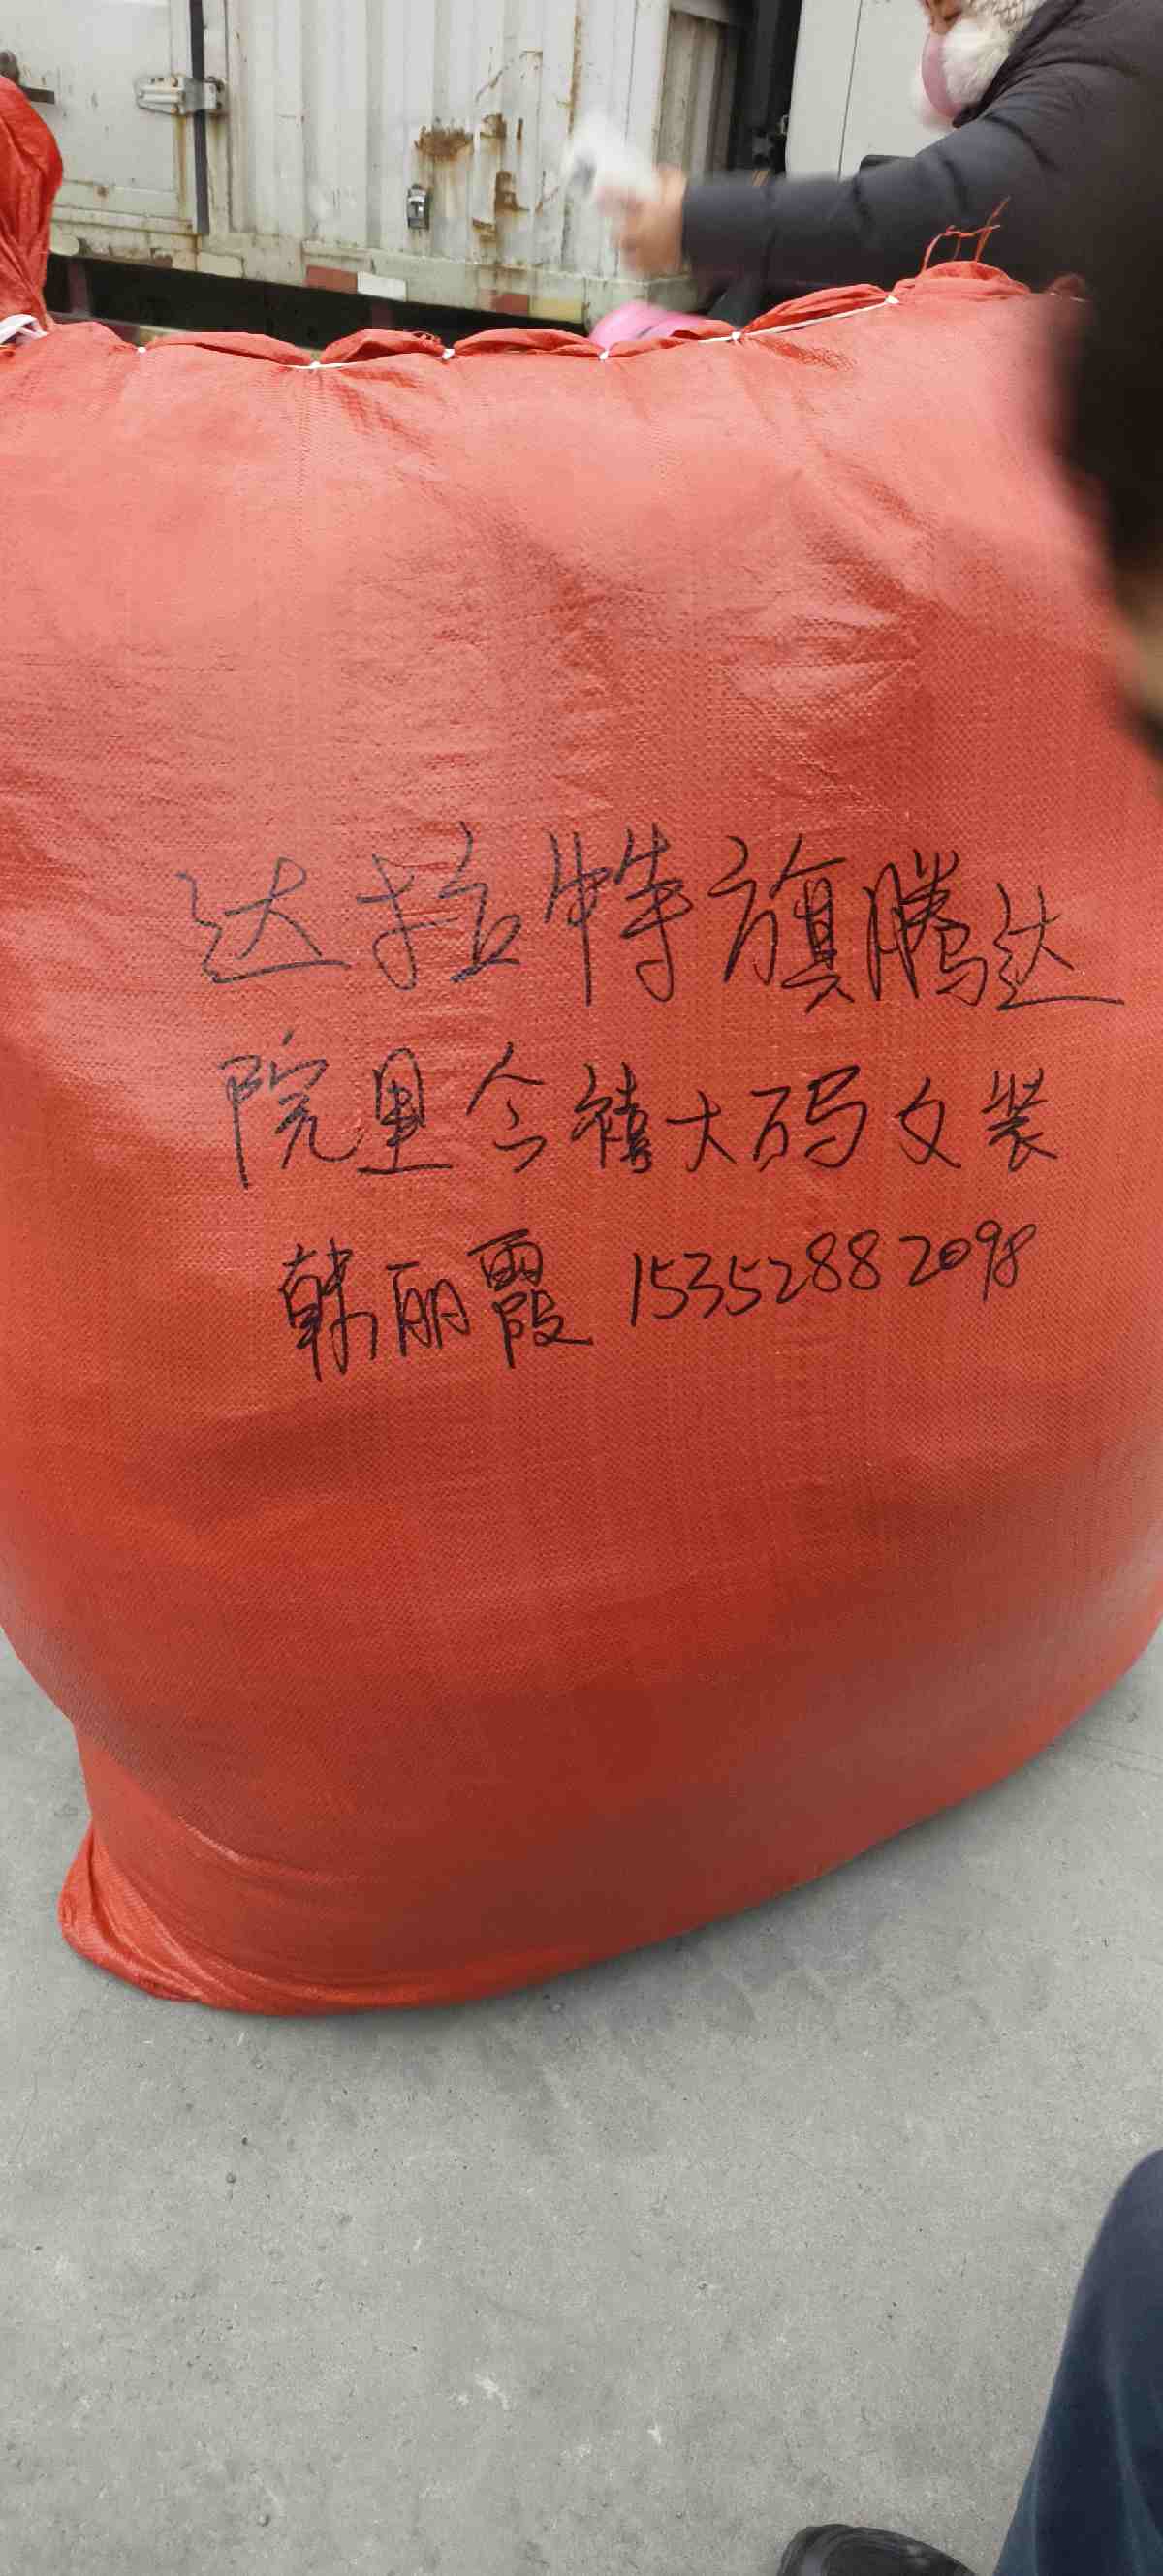 达拉特旗腾达
院里今禧大码女装
韩丽霞 15352882098